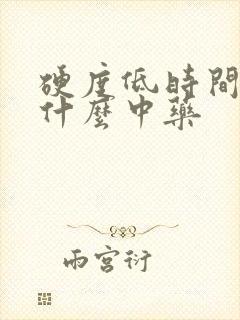 硬度低時間
什麼中藥
雨宮衍